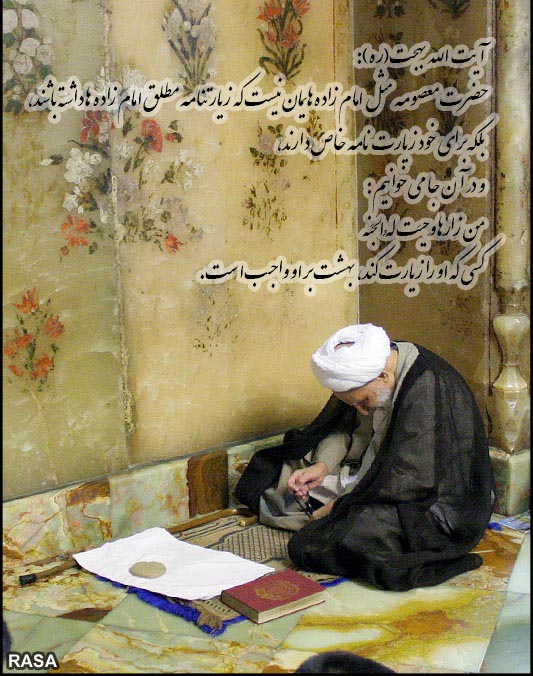 آیت الله بهجت (ره):
حضرت معصومه مثل امام زاده هایمان نیست که زیارتنامه مطلق امام زاده ها داشته باشند،
بلکه برای خود زیارت نامه خاص دارند،
و در آن جا می خوانیم:
من زارها وجبت له الجنه
کسی که او را زیارت کند، بهشت بر او واجب است.
RASA